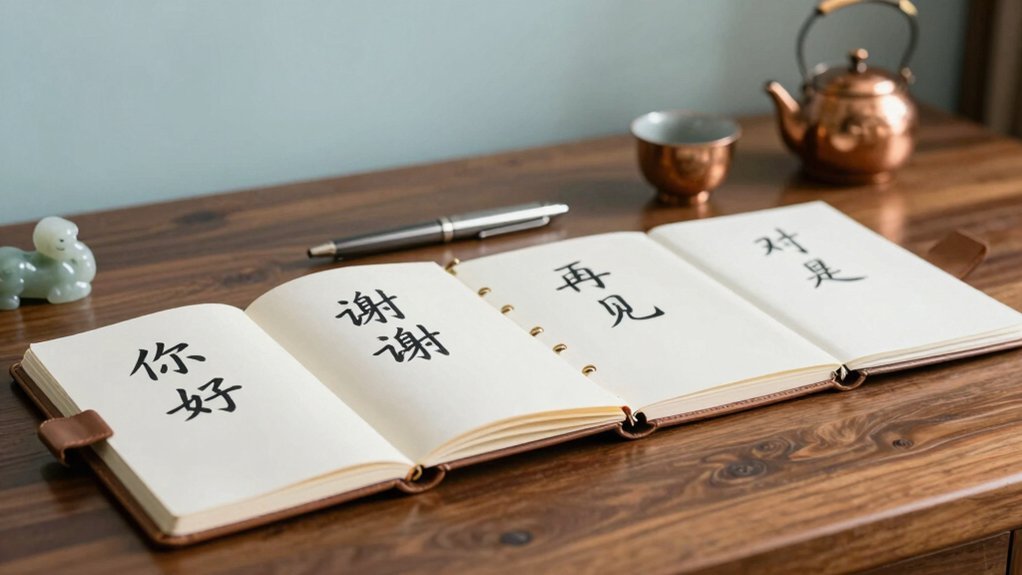 你
好
谢
谢
再
见
对
是